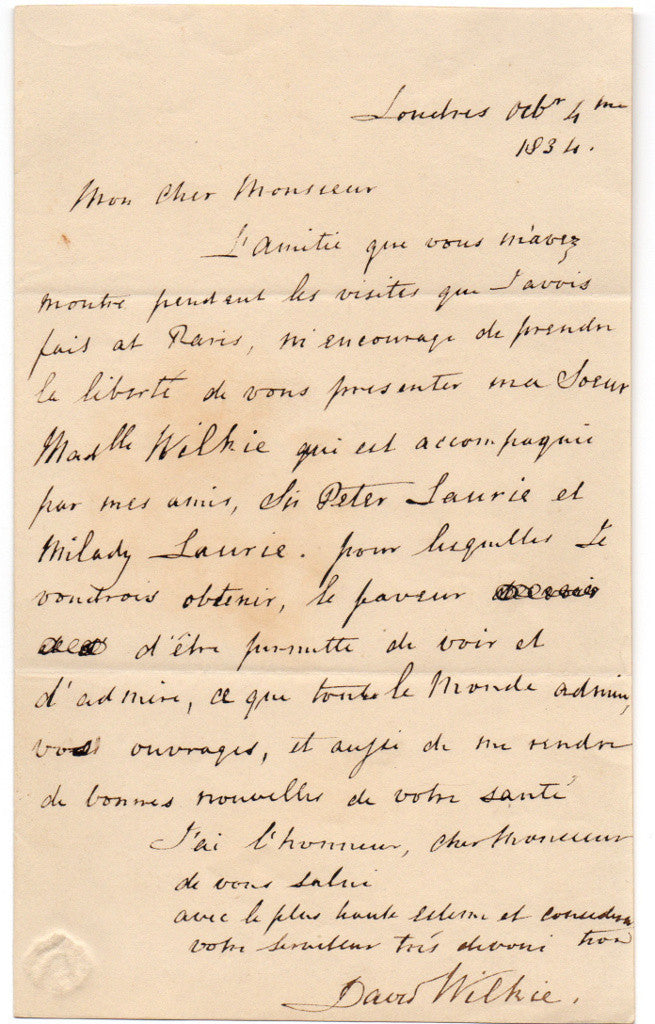 Londres Octbr 4 me
1834.
Mon cher Monsieur
L'amitie que vous m'avez
montré pendant les visites que J'avois
fait at Paris, m'encourage de prendre
la liberté de vous presenter ma Soeur
Madlle Wilkie qui est accompagnie
par mes amis, Sir Peter Laurie et
Milady Laurie. pour lesquelles Je
voudrois obtenir, le faveur
d'être permitte de voir et
d'admire, ce que toute le Monde admire,
vos ouvrages, et aussi de me rendre
de bonnes nouvelles de votre santé
J'ai l'honneur, cher Monsieur
de vous salui
avec le plus haute esteem et considera
tion
votre serviteur trés devoui
David Wilkie.